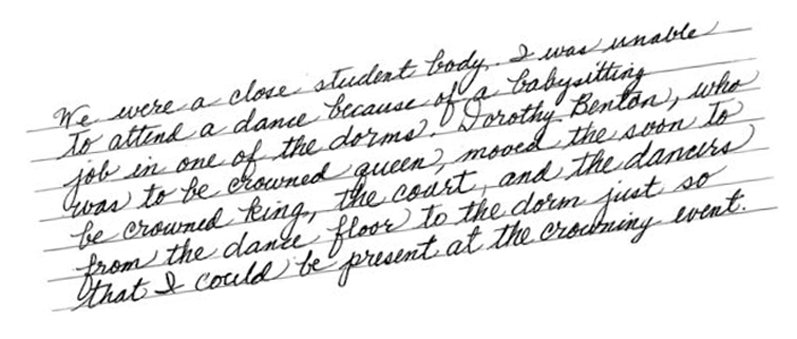 We were a close student body. I was unable
to attend a dance because of a babysitting
job in one of the dorms. Dorothy Benton, who
was to be crowned queen, moved the soon to
be crowned king, the court, and the dancers
from the dance floor to the dorm just so
that I could be present at the crowning event.